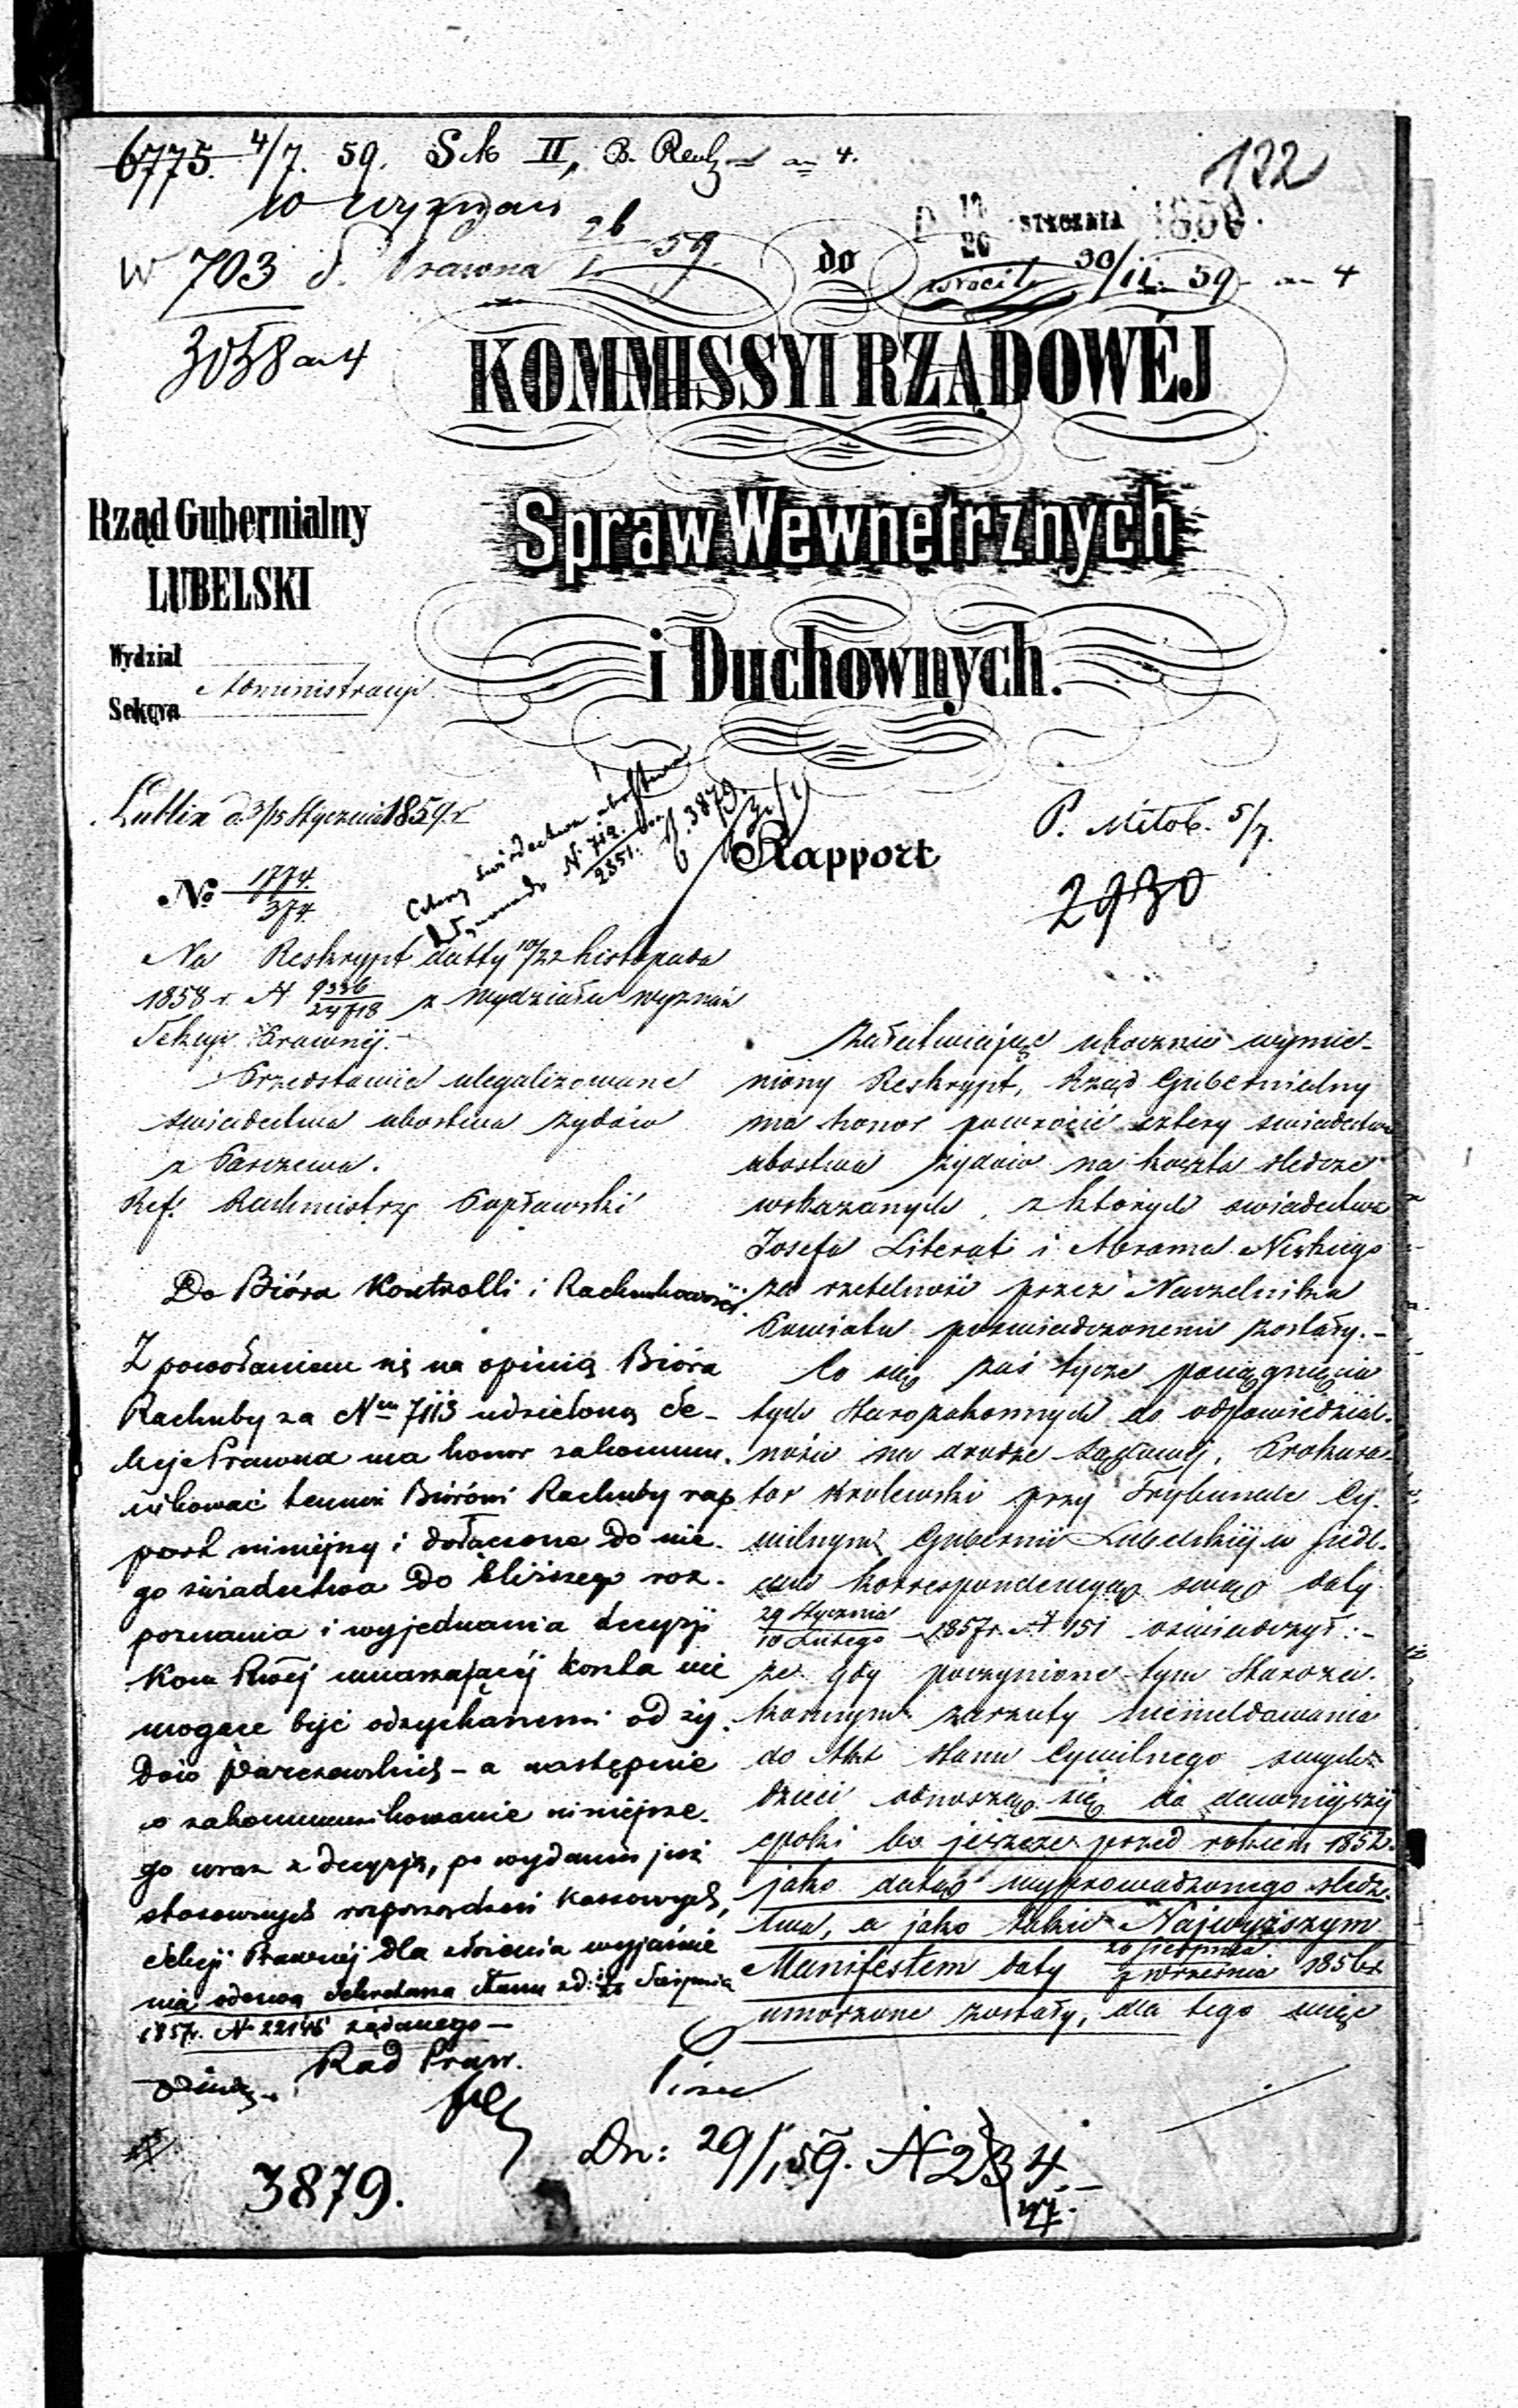 6775. 4/7. 59. Sek II, B. Rach
122
w wyznań
W 703 S. Prawna 26/1 59.
do
STYCZNIA 1859.
wróciło 30/11. 59 4
3038 4
KOMMISSYI RZĄDOWÉJ
Spraw Wewnętrznych
i Duchownych.
Rząd Gubernialny
LUBELSKI
Wydział
Administracyi
Sekcya
Lublin d. 3/15 Stycznia 1859 r.
№ 1774/374
Cztery świadectwa ubóstwa
N. 712. 2851. 3879.
Rapport
P. Mitob. 5/7.
2930
Na Reskrypt datty 10/22 Listopada
1858 r. N 9336/24718 z Wydziału wyznań
Sekcyi Prawnéj.
Przedstawia ulegalizowane
świadectwa ubóstwa żydów
z Parczewa.
Ref. Rachmistrz Popławski
Do Bióra Kontrolli i Rachunkowości
Z powołaniem się na opinią Bióra
Rachuby za Nem 7113 udzieloną Se-
kcja Prawna ma honor zakommu-
nikować temuż Biórowi Rachuby rap
port niniejszy i dołączone do nie-
go świadectwa do bliższego roz-
poznania i wyjednania decyzji
Kom Rwéj umarzającéj koszta nie
mogące być odzyskanemi od ży-
dów Parczewskich – a następnie
o zakommunikowanie niniejsze-
go wraz z decyzją, po wydaniu już
stosownych rozporządzeń kassowych,
Sekcji Prawnéj dla złożenia wyjaśnie
nia odezwą Sekretarza Stanu z d: Sierpnia
1857 r. N 22146 żądanego –
Rad Praw.
3879.
Załatwiając ubocznie wymie-
niony Reskrypt, Rząd Gubernialny
ma honor powrócić cztery świadectwa
ubóstwa żydów na koszta śledcze
wskazanych, z których świadectwa
Josefa Literat i Abrama Niskiego
za rzetelność przez Naczelnika
Powiatu poświadczonemi zostały. –
Co się zaś tycze pociągnięcia
tych Starozakonnych do odpowiedzial-
ności na drodze sądowéj, Prokura-
tor Królewski przy Trybunale Cy-
wilnym Gubernii Lubelskiéj w Siedl-
cach korrespondencyą swoją daty
29 Stycznia/10 Lutego 1857 r. N 151 oświadczył: –
że gdy poczynione tym Staroza-
konnym zarzuty niemeldowania
do Akt Stanu Cywilnego swych
dzieci odnoszą się do dawniejszéj
epoki bo jeszcze przed rokiem 1852.
jako datą wyprowadzonego śledz-
twa, a jako takie Najwyższym
Manifestem daty 26 Sierpnia/7 Września 1856 r.
umorzone zostały, dla tego więc
Dn: 29/1 59. N 234